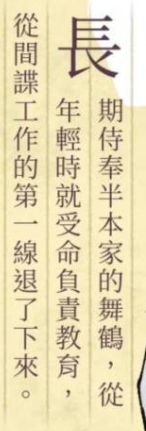 長期侍奉半本家的舞鶴，從
年輕時就受命負責教育，
從間諜工作的第一線退了下來。